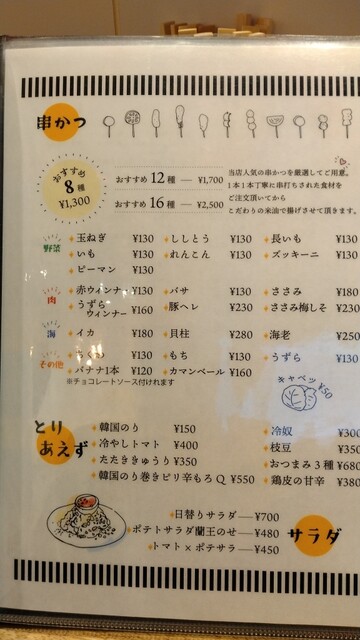 串かつ
おすすめ
8種
¥1,300
おすすめ 12種 — ¥1,700
おすすめ 16種 — ¥2,500
当店人気の串かつを厳選してご用意。
1本1本丁寧に串打ちされた食材を
ご注文頂いてから
こだわりの米油で揚げさせて頂きます。
野菜
玉ねぎ ¥130 ししとう ¥130 長いも ¥130
いも ¥130 れんこん ¥130 ズッキーニ ¥130
ピーマン ¥130
肉
赤ウィンナー ¥130 バサ ¥130 ささみ ¥180
うずらウィンナー ¥160 豚ヘレ ¥230 ささみ梅しそ ¥230
海
イカ ¥180 貝柱 ¥280 海老 ¥250
その他
ちくわ ¥130 もち ¥130 うずら ¥130
バナナ1本 ¥120 カマンベール ¥160
※チョコレートソース付けれます
キャベツ ¥50
とりあえず
韓国のり ¥150 冷奴 ¥300
冷やしトマト ¥400 枝豆 ¥350
たたききゅうり ¥350 おつまみ3種 ¥680
韓国のり巻きピリ辛もろQ ¥550 鶏皮の甘辛 ¥380
サラダ
日替りサラダ — ¥700
ポテトサラダ蘭王のせ — ¥480
トマト×ポテサラ — ¥450